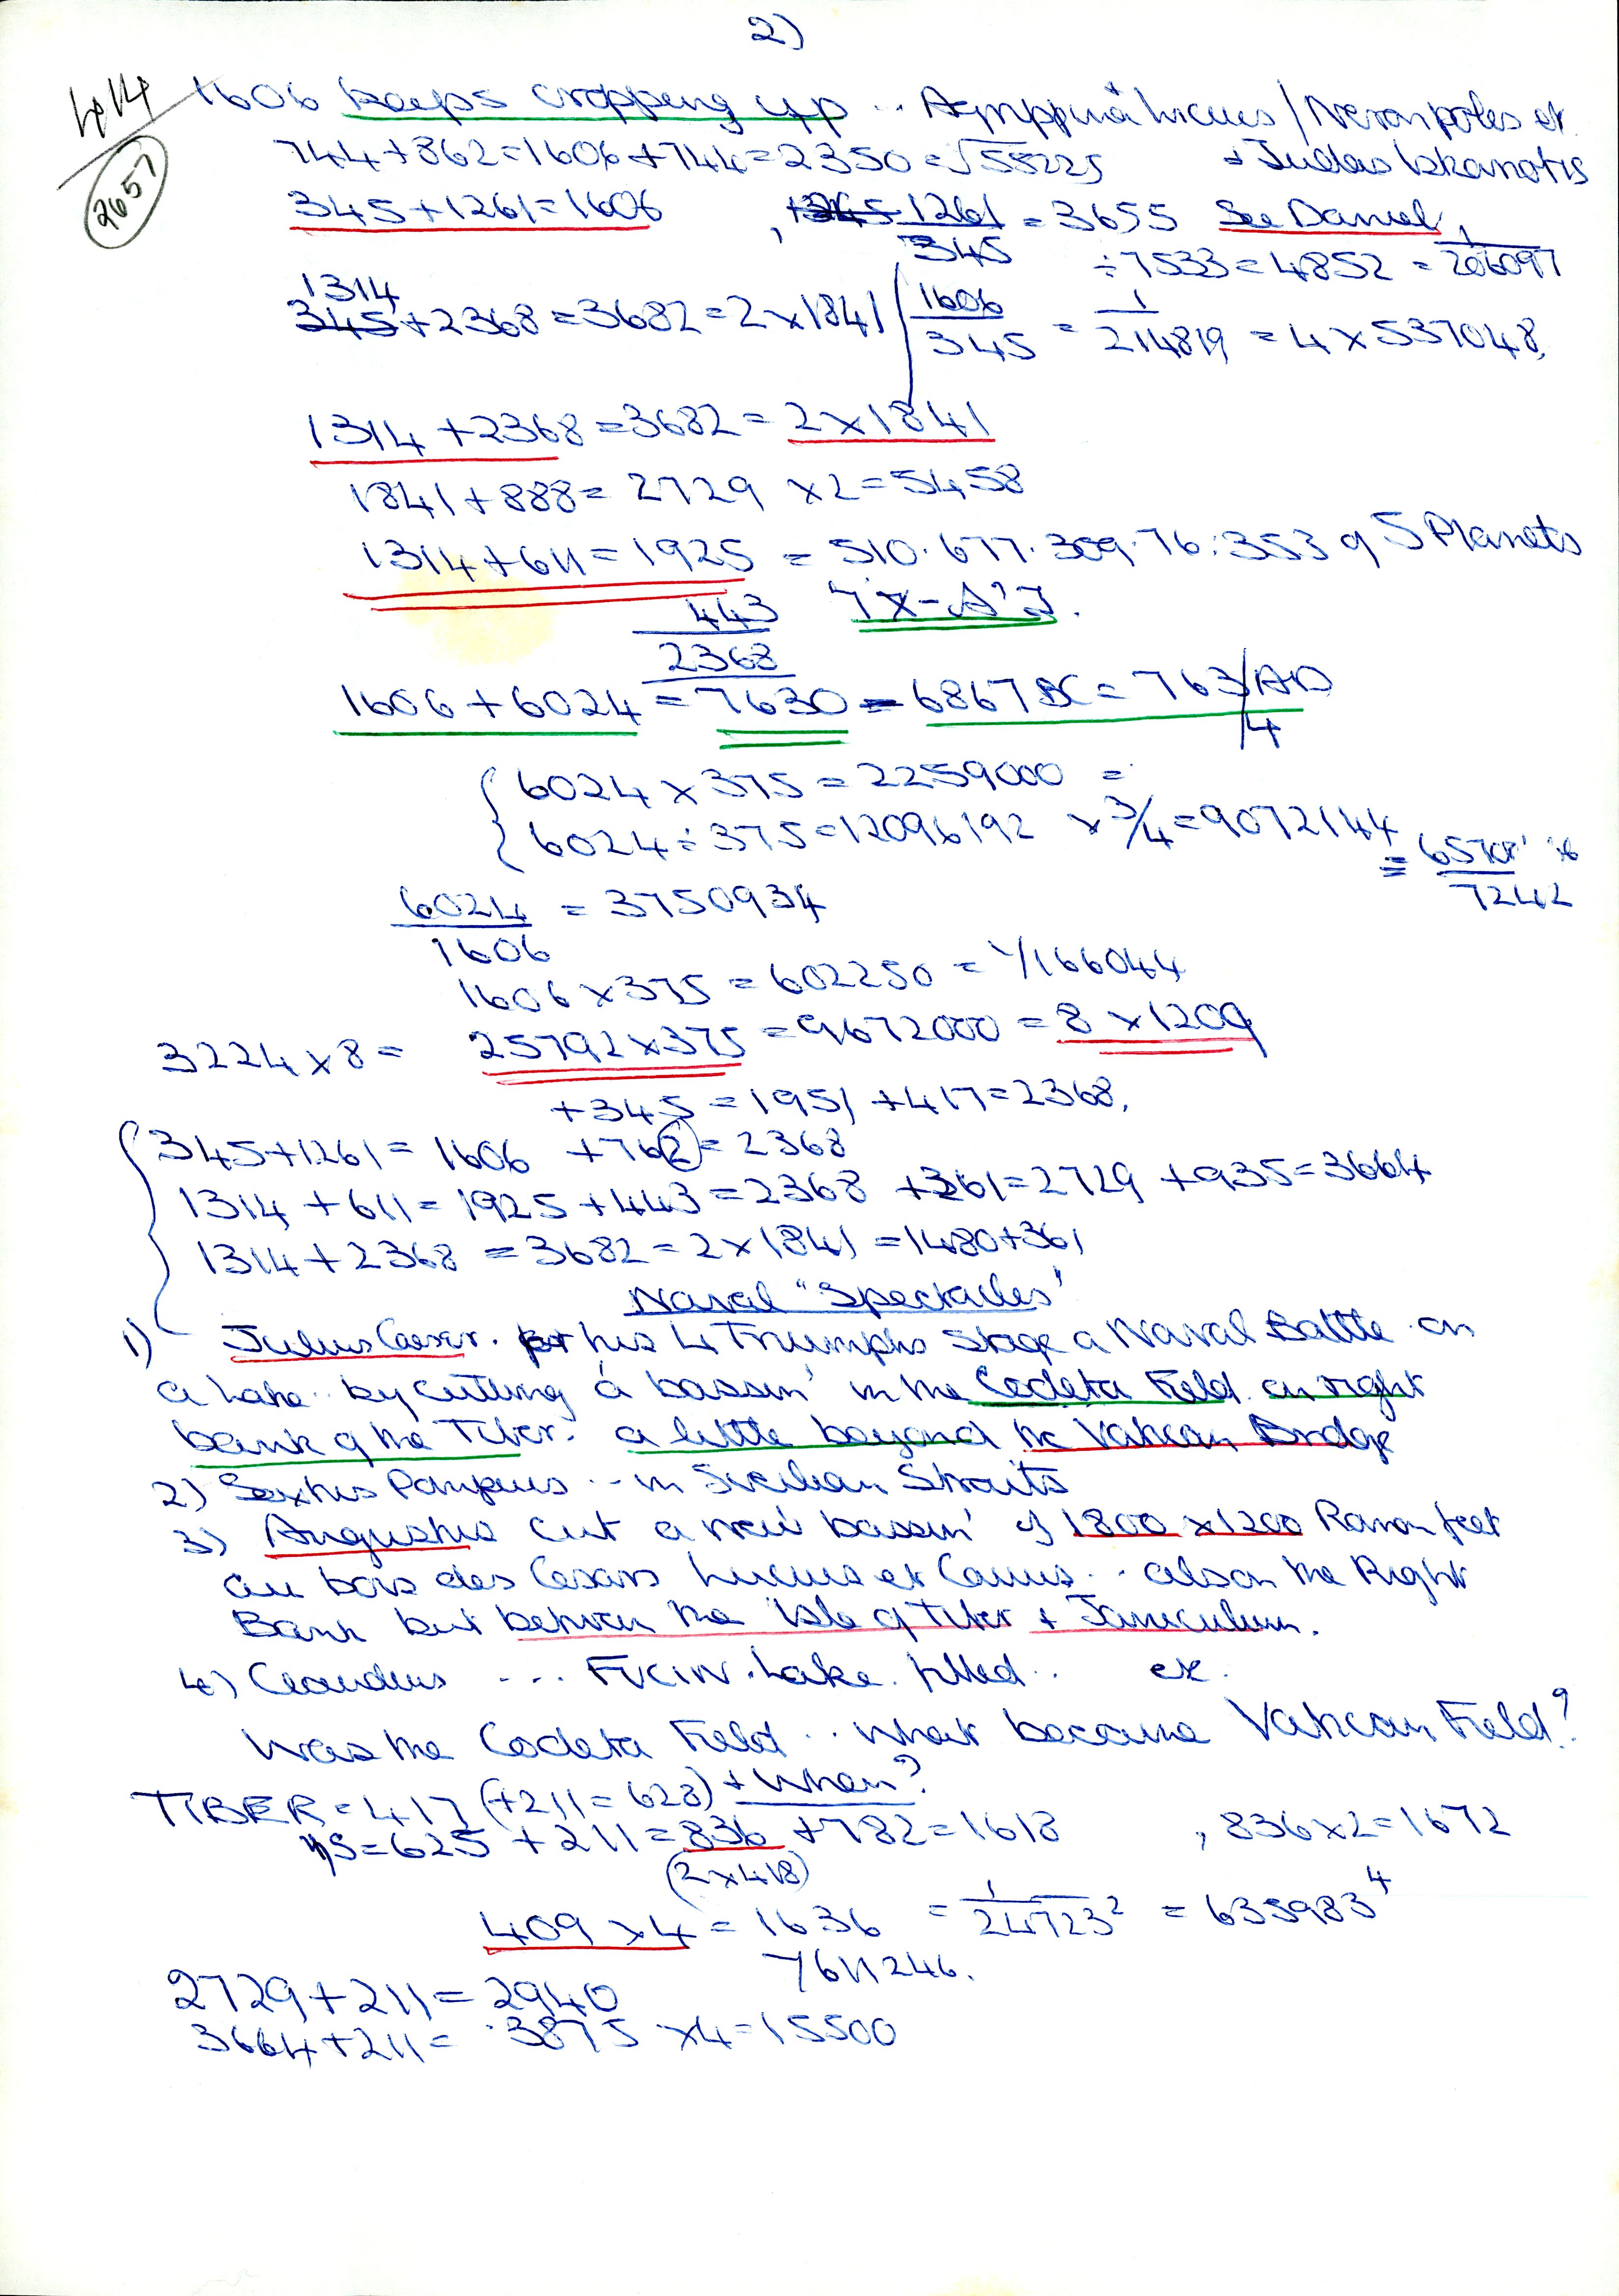 2)
414
2657
1606 keeps cropping up .. Agrippina Lucus / Neronpoles et
744+862=1606+744=2350=√55225 + Judas Iskariotis
345+1261=1606 , 1261/345 = 3655 See Daniel
÷7533=4852 = 1/206097
1314
345+2368=3682=2×1841 1606/345 = 1/214819 = 4×537048,
1314+2368=3682=2×1841
1841+888=2729 ×2=5458
1314+611=1925 = 510.677.309.76:353 of 5 Planets
443
2368
1606+6024=7630=6867BC=763/4 AD
6024×375=2259000 =
6024÷375=12096192 ×3/4=9072144
7242
6024/1606 = 3750934
1606×375=602250=1/166044
3224×8= 25792×375=9672000=8×1209
+345=1951 +417=2368,
345+1261=1606 +762=2368
1314+611=1925+443=2368 +361=2729 +935=3664
1314+2368=3682=2×1841=1480+361
Naval "Spectacles"
1) Julius Caeser. for his 4 Triumphs Stage a Naval Battle on
a Lake.. by cutting a 'bassin' in the Codeta Field on right
bank of the Tiber. a little beyond the Vatican Bridge
2) Sextus Pompeus .. in Sicilian Straits
3) Augustus cut a new 'bassin' of 1800×1200 Roman feet
au bois des Cesars Lucius et Caius .. also on the Right
Bank but between the Isle of Tiber + Janiculum.
4) Claudius .... FUCIN. Lake. filled .. etc.
Was the Codeta Field .. what became Vatican Field?
+ When?
TIBER=417 (+211=628)
=625 +211=836 +782=1618 , 836×2=1672
(2×418)
409×4=1636 = 1/24723² = 635983⁴
7611246.
2729+211=2940
3664+211= 3875 ×4=15500